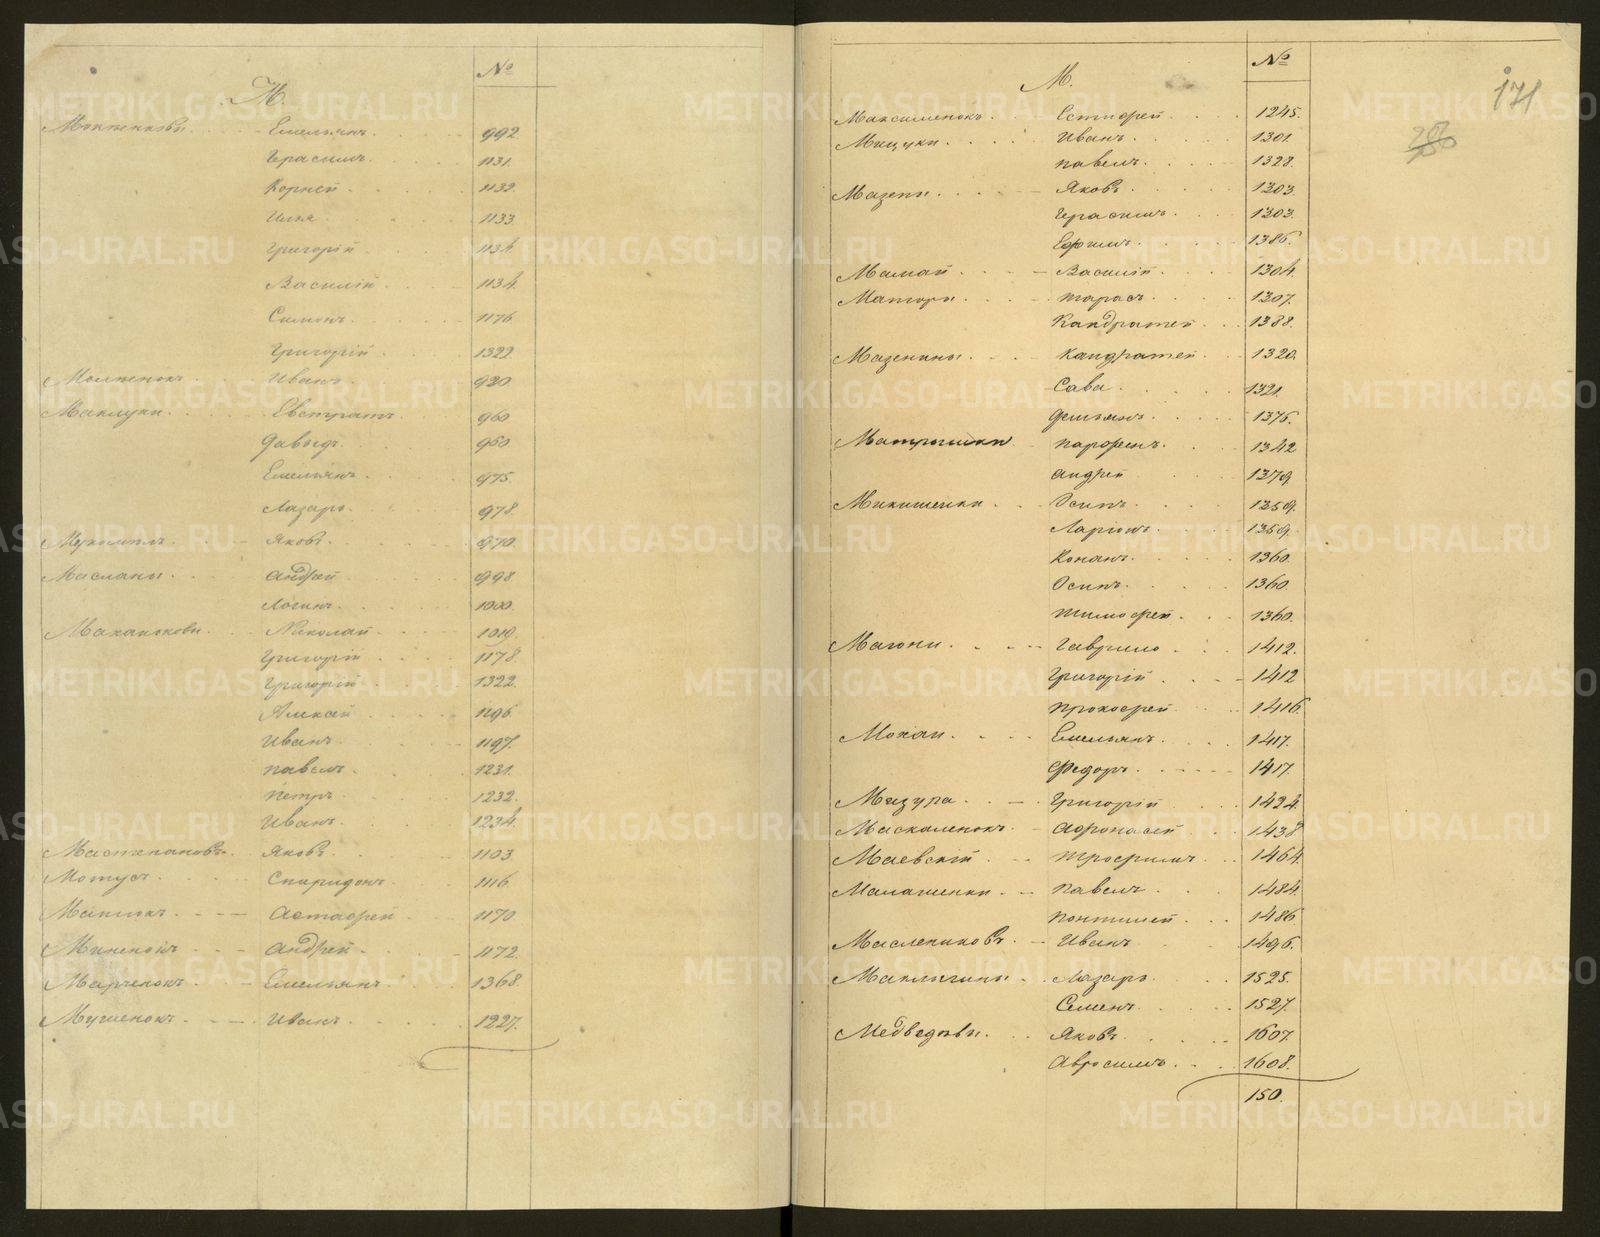 №
М.
Емельянъ 992.
Герасимъ 1131.
Корней 1132.
Илья 1133
Григорій 1134
Василій 1134.
Симонъ 1176.
Григорій 1322.
Иванъ 920.
Маклуки Евстратъ 960
Давыдъ 960
Емельянъ 975.
Лазарь 978.
Яковъ 970.
Масланы Андрей 998.
Логинъ 1000.
Николай 1010.
Григорій 1178.
Григорій 1322.
Алексей 1196.
Иванъ 1197.
Павелъ 1231.
Петръ 1232.
Иванъ 1234.
Яковъ 1103
Мотусъ Спиридонъ 1116.
Астафей 1170.
Миненокъ Андрей 1172.
Марченокъ Емельянъ 1368.
Иванъ 1227.
№
М.
171
Максименокъ Естифей 1245.
Мицуки Иванъ 1301.
Павелъ 1328.
Мазепы Яковъ 1303
Герасимъ 1303.
Ефимъ 1386.
Мамай Василій 1304.
Маторы Тарасъ 1307.
Кандратей 1388.
Мазенины Кандратей 1320.
Сава 1321.
Демьянъ 1376.
Парфенъ 1342
Андрей 1379.
Микишенки Осипъ 1359.
Ларіонъ 1359.
Конанъ 1360.
Осипъ 1360.
Тимофей 1360.
Гаврило 1412.
Григорій 1412
Прокофей 1416.
Емельянъ 1417.
Федоръ 1417.
Мазура Григорій 1424.
Маскаленокъ Афонасей 1438
Маевскій Трофимъ 1464.
Малашенки Павелъ 1484.
Понтилей 1486
Маслениковъ Иванъ 1496.
Маклыгины Лазарь 1525.
Семенъ 1527.
Медведевы Яковъ 1607.
Авросимъ 1608.
150.
METRIKI.GASO-URAL.RU